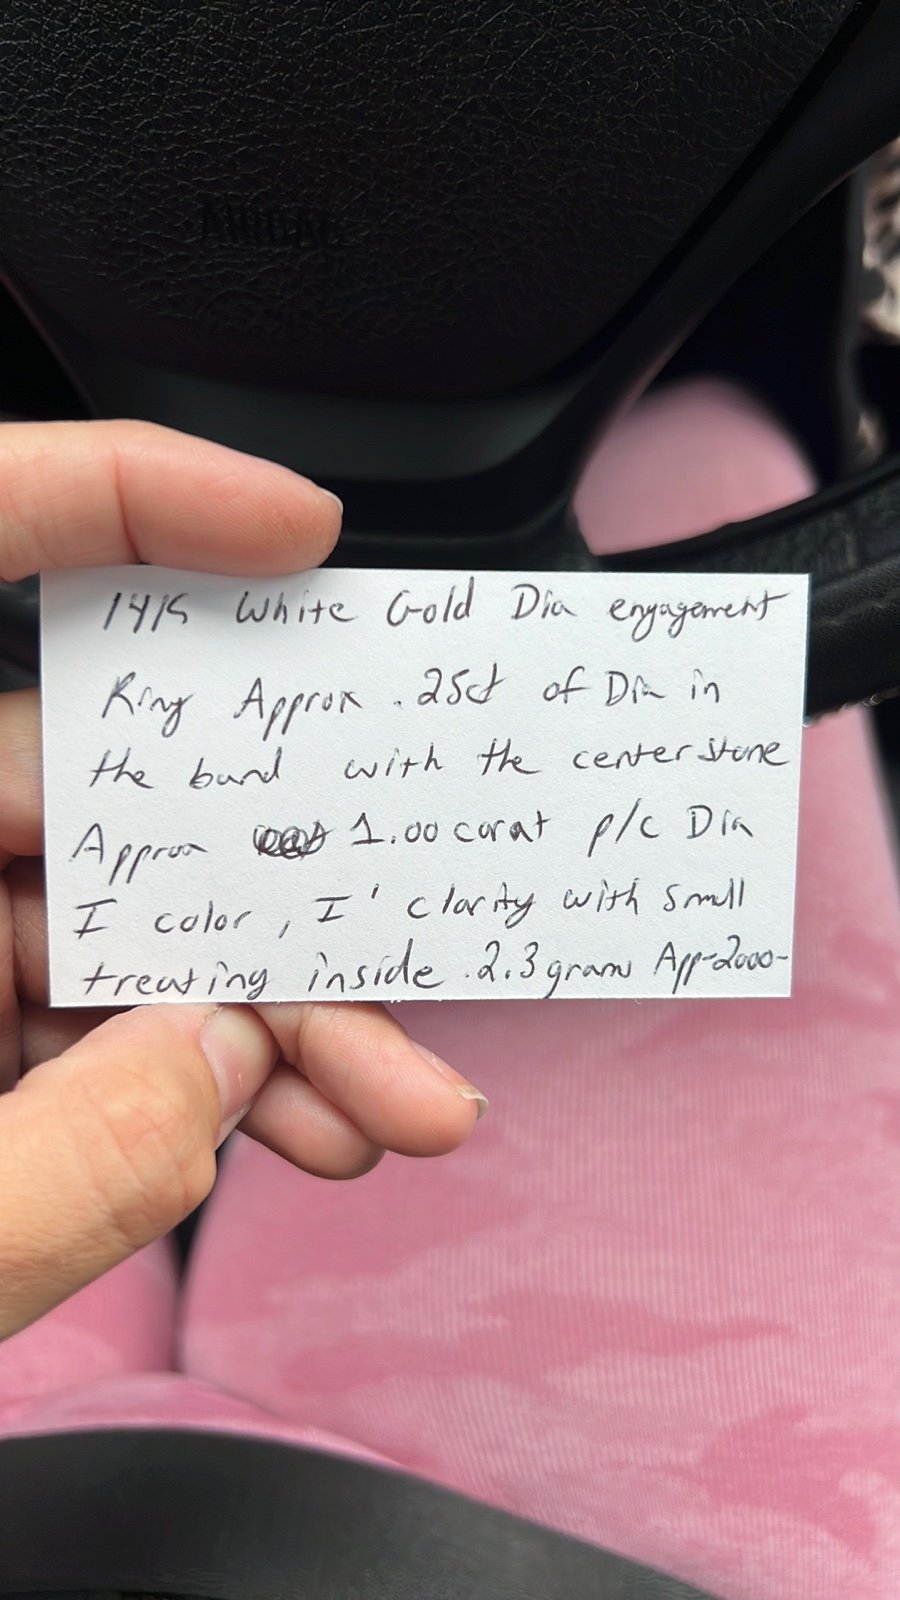 AIRBAG
14K White Gold Dia engagement
Ring Approx .25ct of Dia in
the band with the center stone
Approx 1.00 carat p/c Dia
I color, I' clarity with small
treating inside 2.3 grams App-2000-